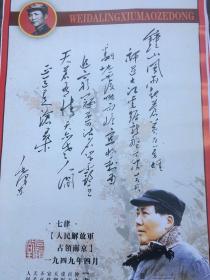 WEIDALINGXIUMAOZEDONG
鍾山風雨起蒼黄百萬雄
師过大江虎踞龍盤今勝昔天
翻地覆慨而慷宜將剩勇
追窮寇不可沽名學霸王
天若有情天亦老人间
正道是滄桑
七律
【人民解放軍
占領南京】
一九四九年四月